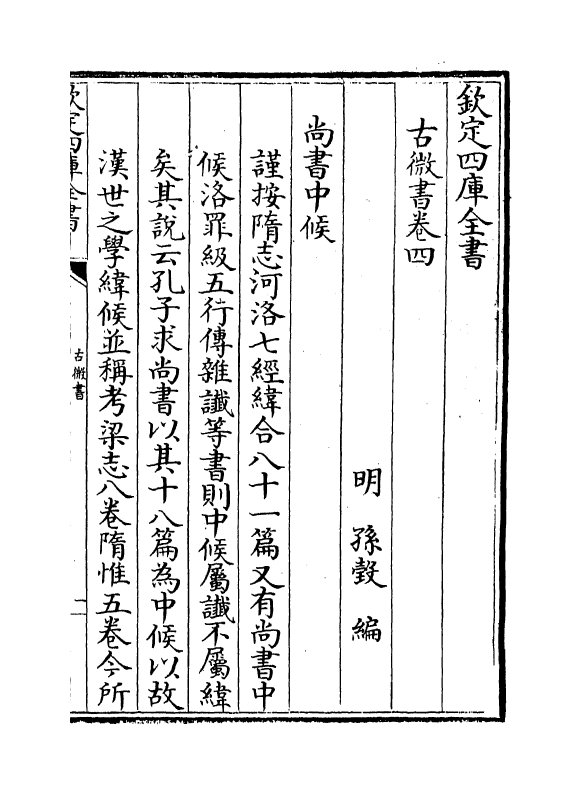 欽定四庫全書
古微書卷四
明孫瑴編
尚書中候
謹按隋志河洛七經緯合八十一篇又有尚書中
候洛罪級五行傳雜讖等書則中候屬讖不屬緯
矣其說云孔子求尚書以其十八篇為中候以故
漢世之學緯候並稱考梁志八卷隋惟五卷今所
欽定四庫全書
古微書